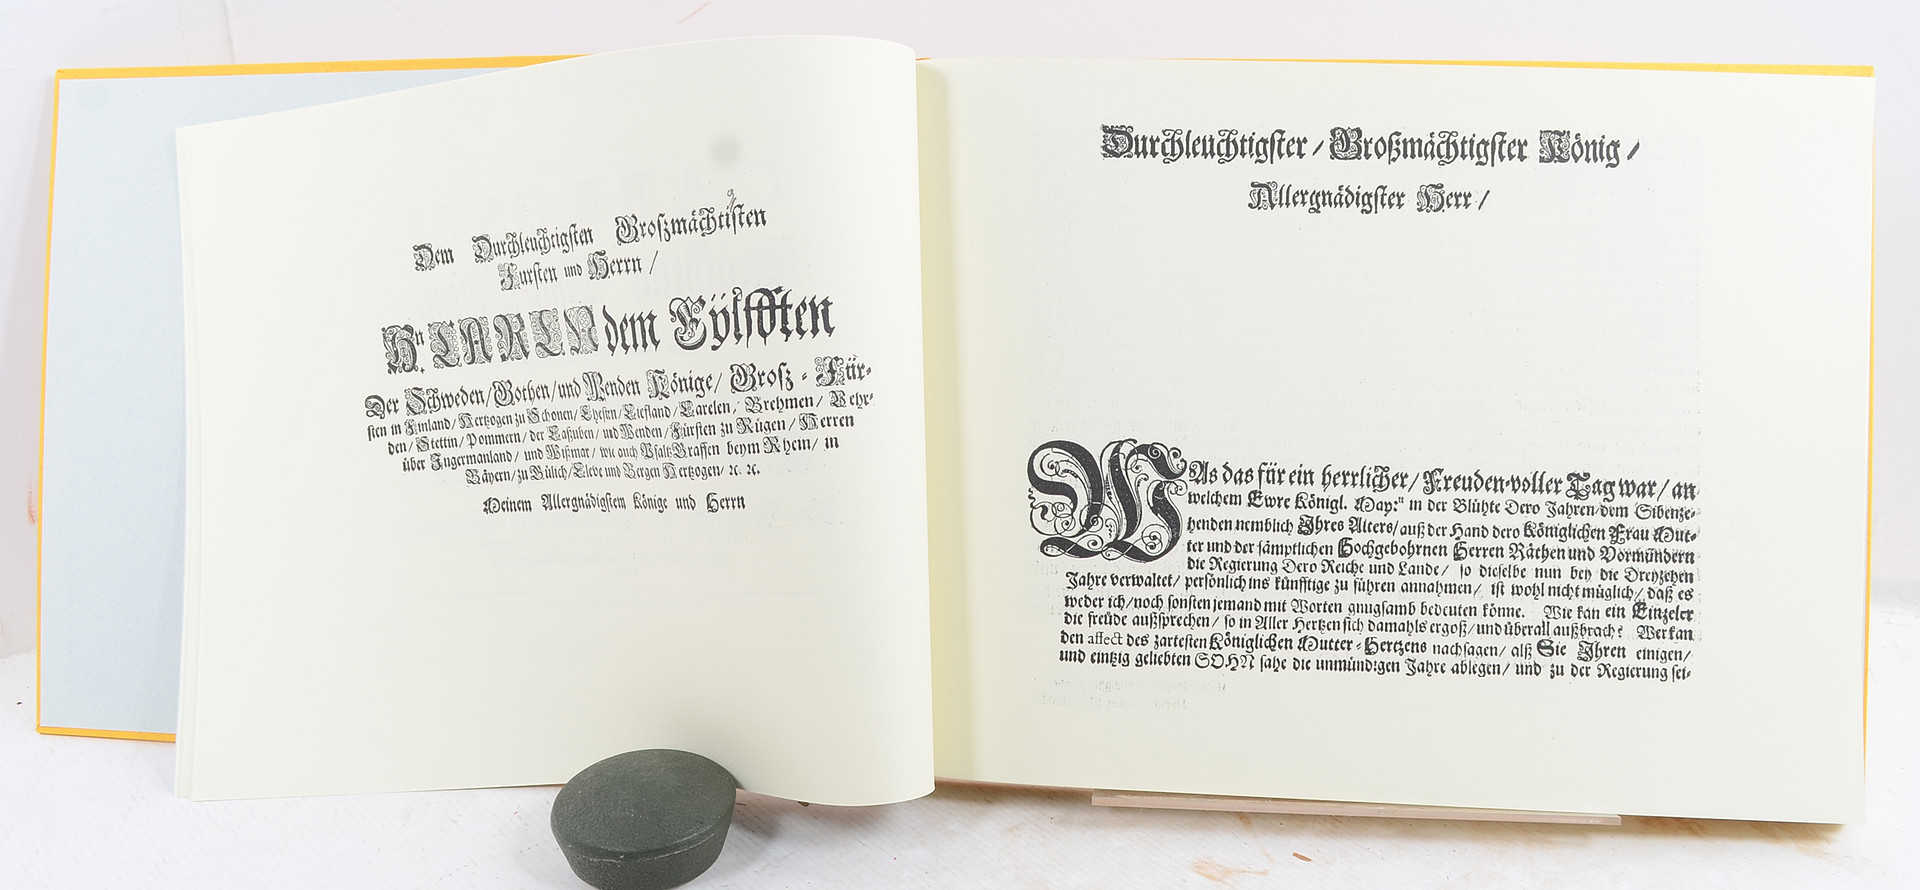 Dem Durchleuchtigsten Großmächtigsten
Fursten und Herrn /
Hn. CARLN dem Eylfften
Der Schweden/Gothen/und Wenden Könige/ Grosz - Für-
sten in Finland/Hertzogen zu Schonen/Ehesten/Liefland/Carelen/ Brehmen/ Vehr-
den/Stettin/Pommern/der Caßuben/ und Wenden/Fürsten zu Rügen/ Herren
über Ingermanland/ und Wißmar/ wie auch Pfaltz Graffen beym Rhein/ in
Bäyern/zu Gülich/Cleve und Bergen Hertzogen/ ꝛc. ꝛc.
Meinem Allergnädigstem Könige und Herrn
Durchleuchtigster / Großmächtigster König /
Allergnädigster Herr /
WAs das für ein herrlicher/ Freuden-voller Tag war/ an
welchem Ewre Königl. May:tt in der Blühte Dero Jahren/dem Sibenze-
henden nemblich Ihres Alters/ auß der Hand dero Königlichen Frau Mut-
ter und der sämptlichen Hochgebohrnen Herren Räthen und Vormündern
die Regierung Dero Reiche und Lande/ so dieselbe nun bey die Dreyzehen
Jahre verwaltet/ persönlich ins künfftige zu führen annahmen/ ist wohl nicht müglich/ daß es
weder ich/noch sonsten jemand mit Worten gnugsamb bedeuten könne. Wie kan ein Eintzeler
die freüde außsprechen/ so in Aller Hertzen sich damahls ergoß/und überall außbrach? Wer kan
den affect des zartesten Königlichen Mutter-Hertzens nachsagen/ alß Sie Ihren einigen/
und eintzig geliebten SOHN sahe die unmündigen Jahre ablegen/ und zu der Regierung sei-